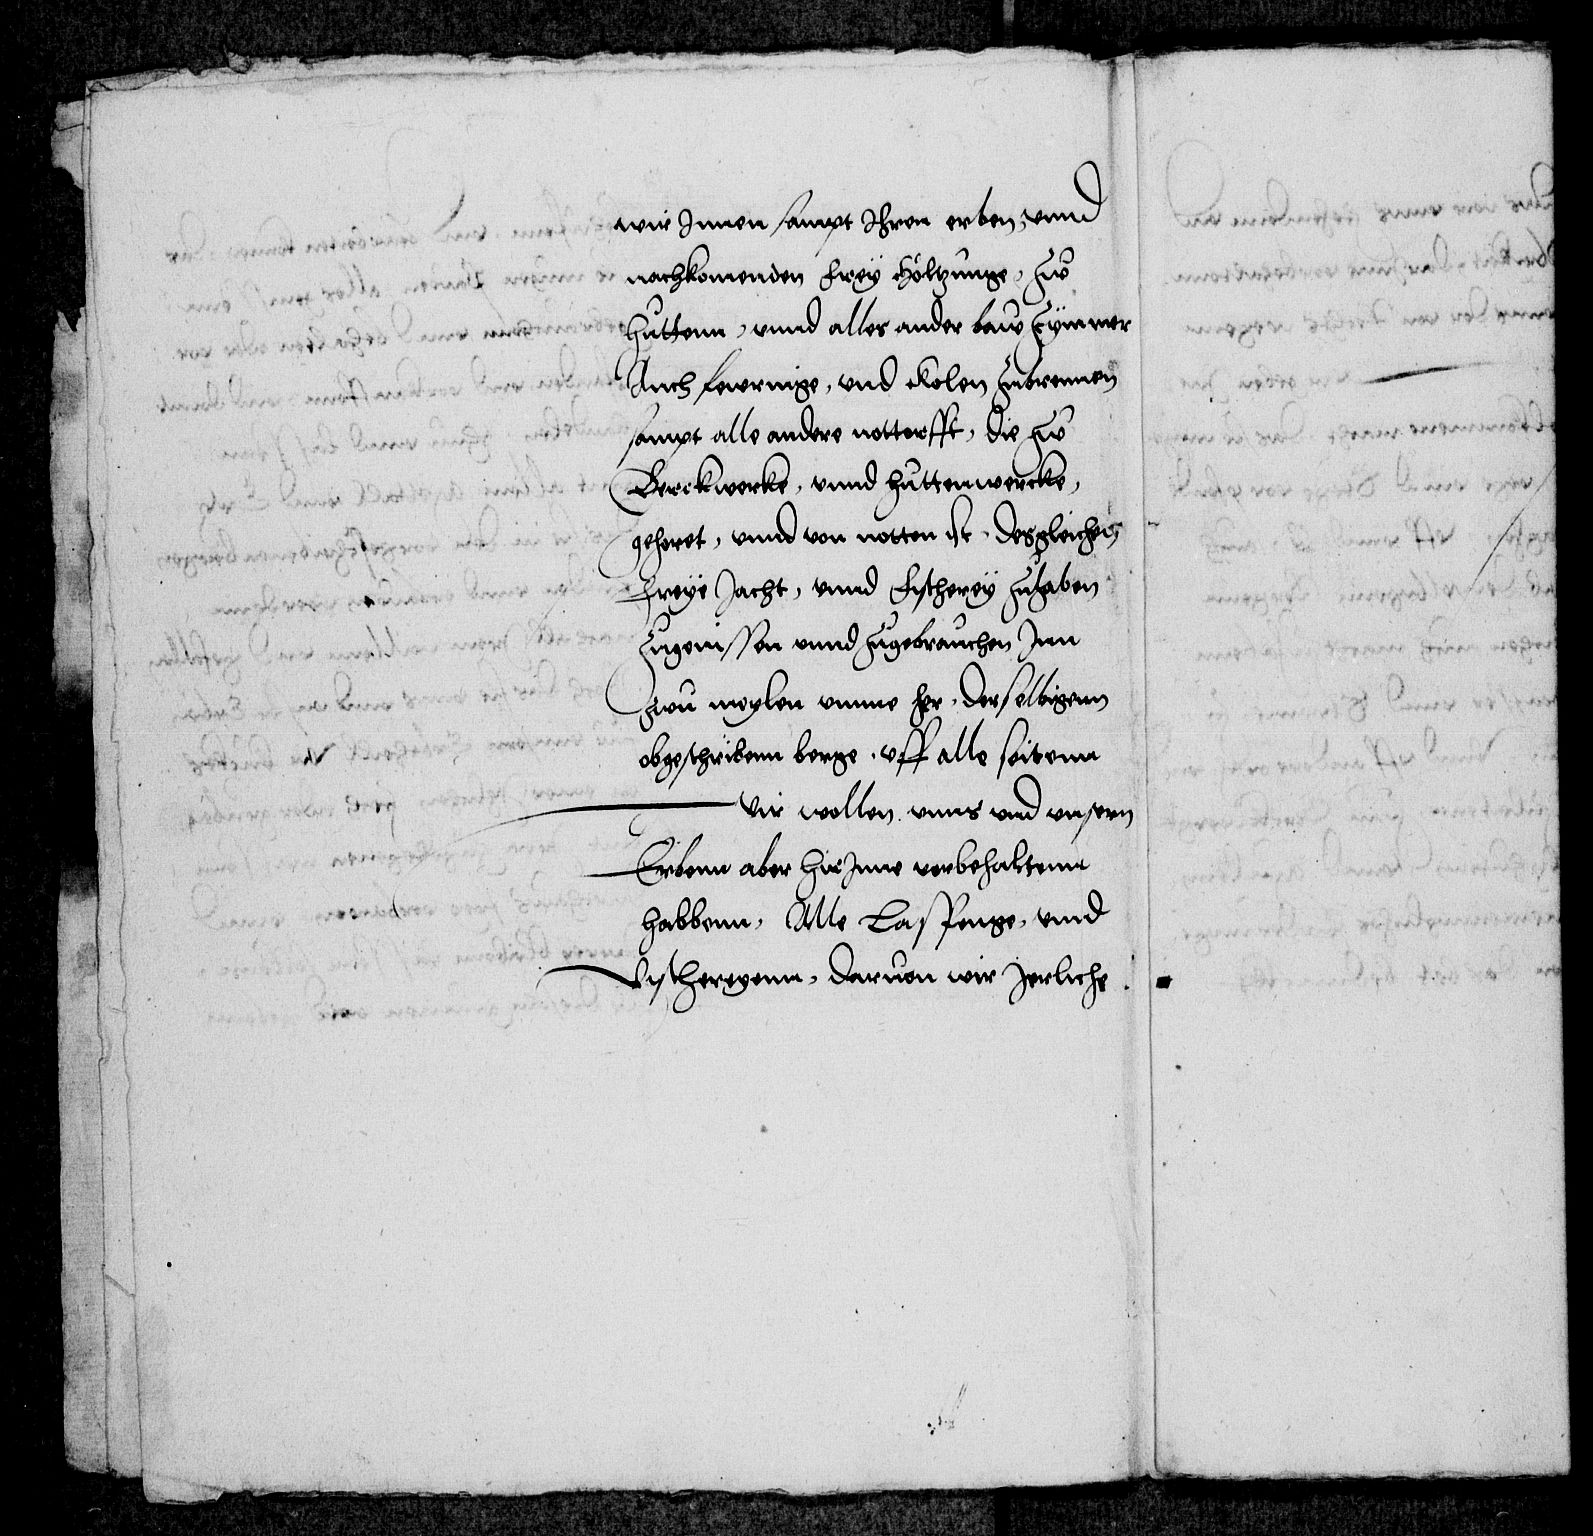 wir Innen sampt Ihren erben, vnnd
nachkomenden frey Höltzunge, zw
huttenn, vnnd alles ander baw zymmer
Auch fewrunge, vnd Kolen zubrennen
sampt alle andere notturfft, die zw
Berckwerke, vnnd huttenwercke,
gehoret, vnnd von notten ist, desgleichen
freye Jacht, vnnd fischerey zuhaben
zugenissen vnnd zugebrauchen Inn
zwu meylen vmme her, derselbigenn
obgeschribenn berge, vff alle seitenn
Wir wollen vnns vnd vnsern
Erbenn aber hir Inne vorbehaltenn
habbenn, Alle vnnd
vischereyenn, daruon wir Jerliche